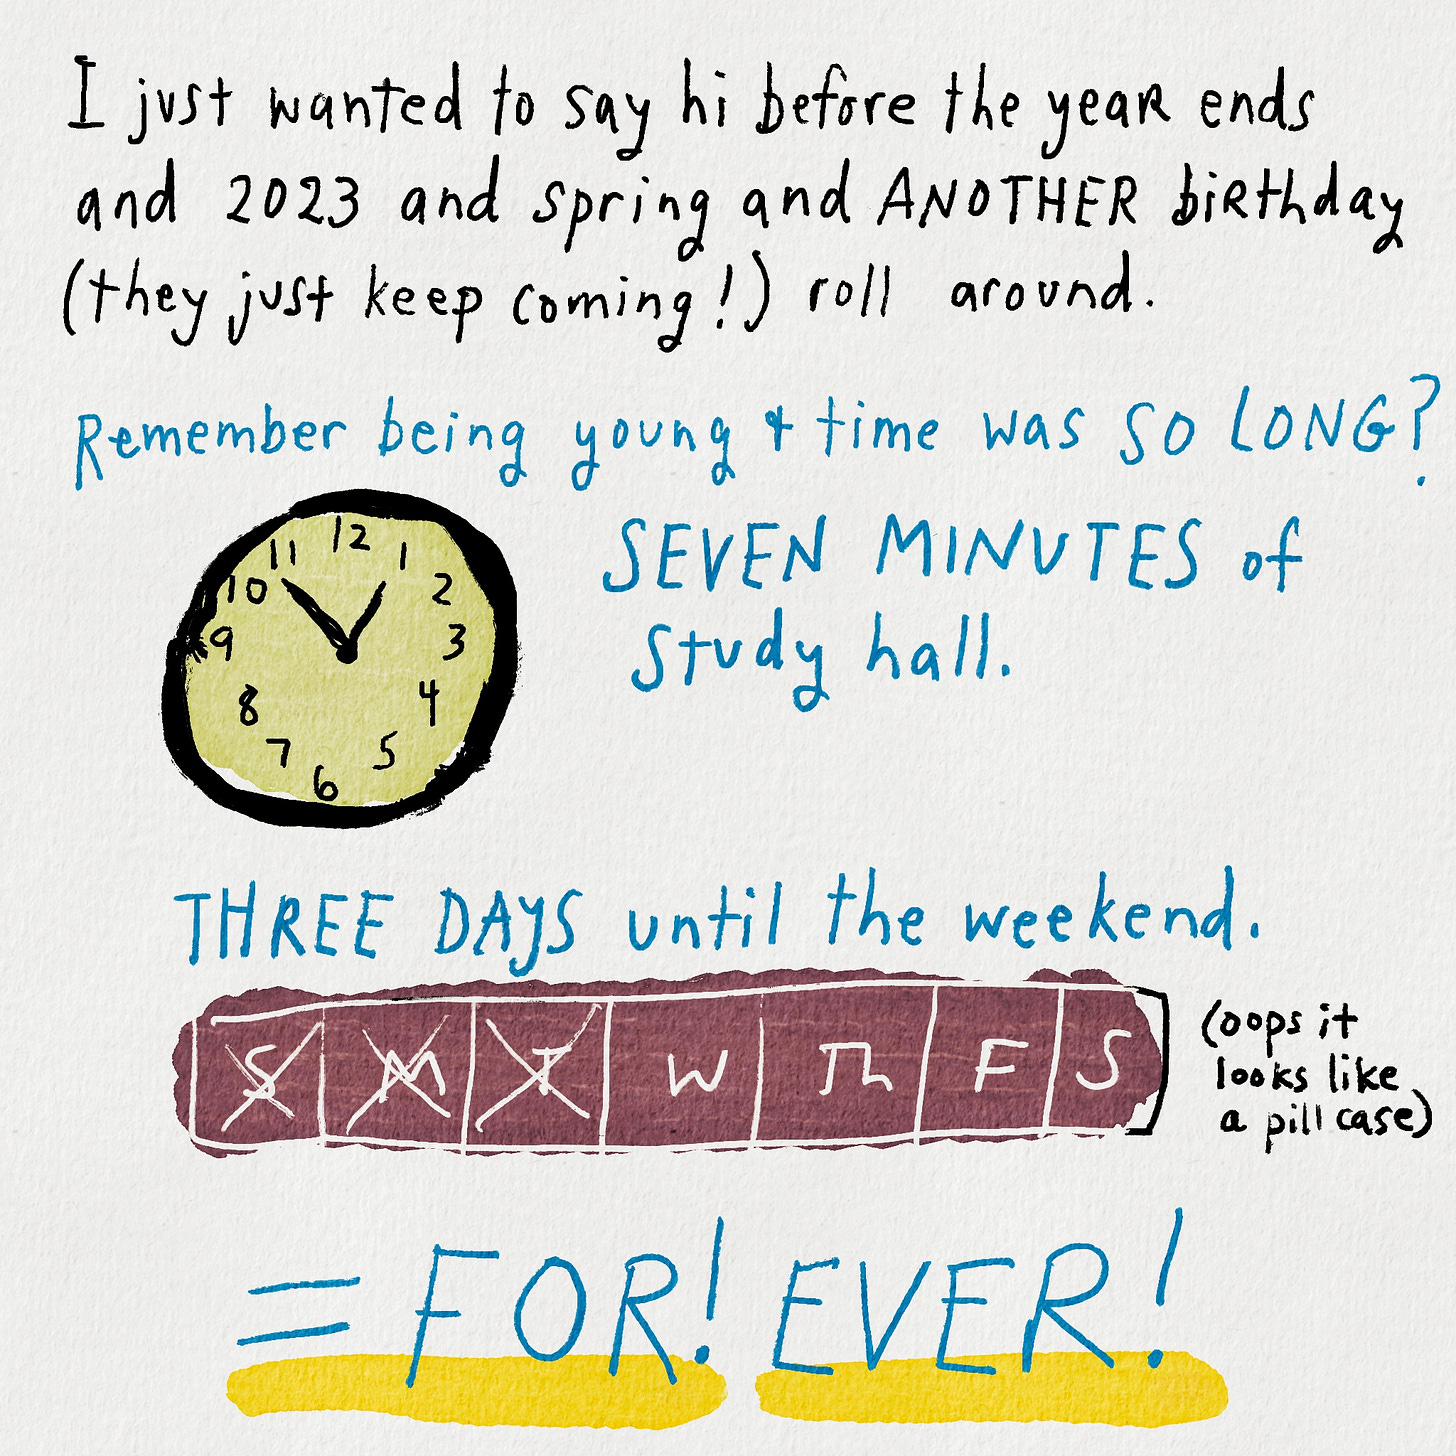 I just wanted to say hi before the year ends
and 2023 and spring and ANOTHER birthday
(they just keep coming!) roll around.
Remember being young & time was SO LONG?
12
11 1
10 2
9 3
8 4
7 5
6
SEVEN MINUTES of
study hall.
THREE DAYS until the weekend.
S M T W Th F S
(oops it
looks like
a pill case)
= FOR! EVER!